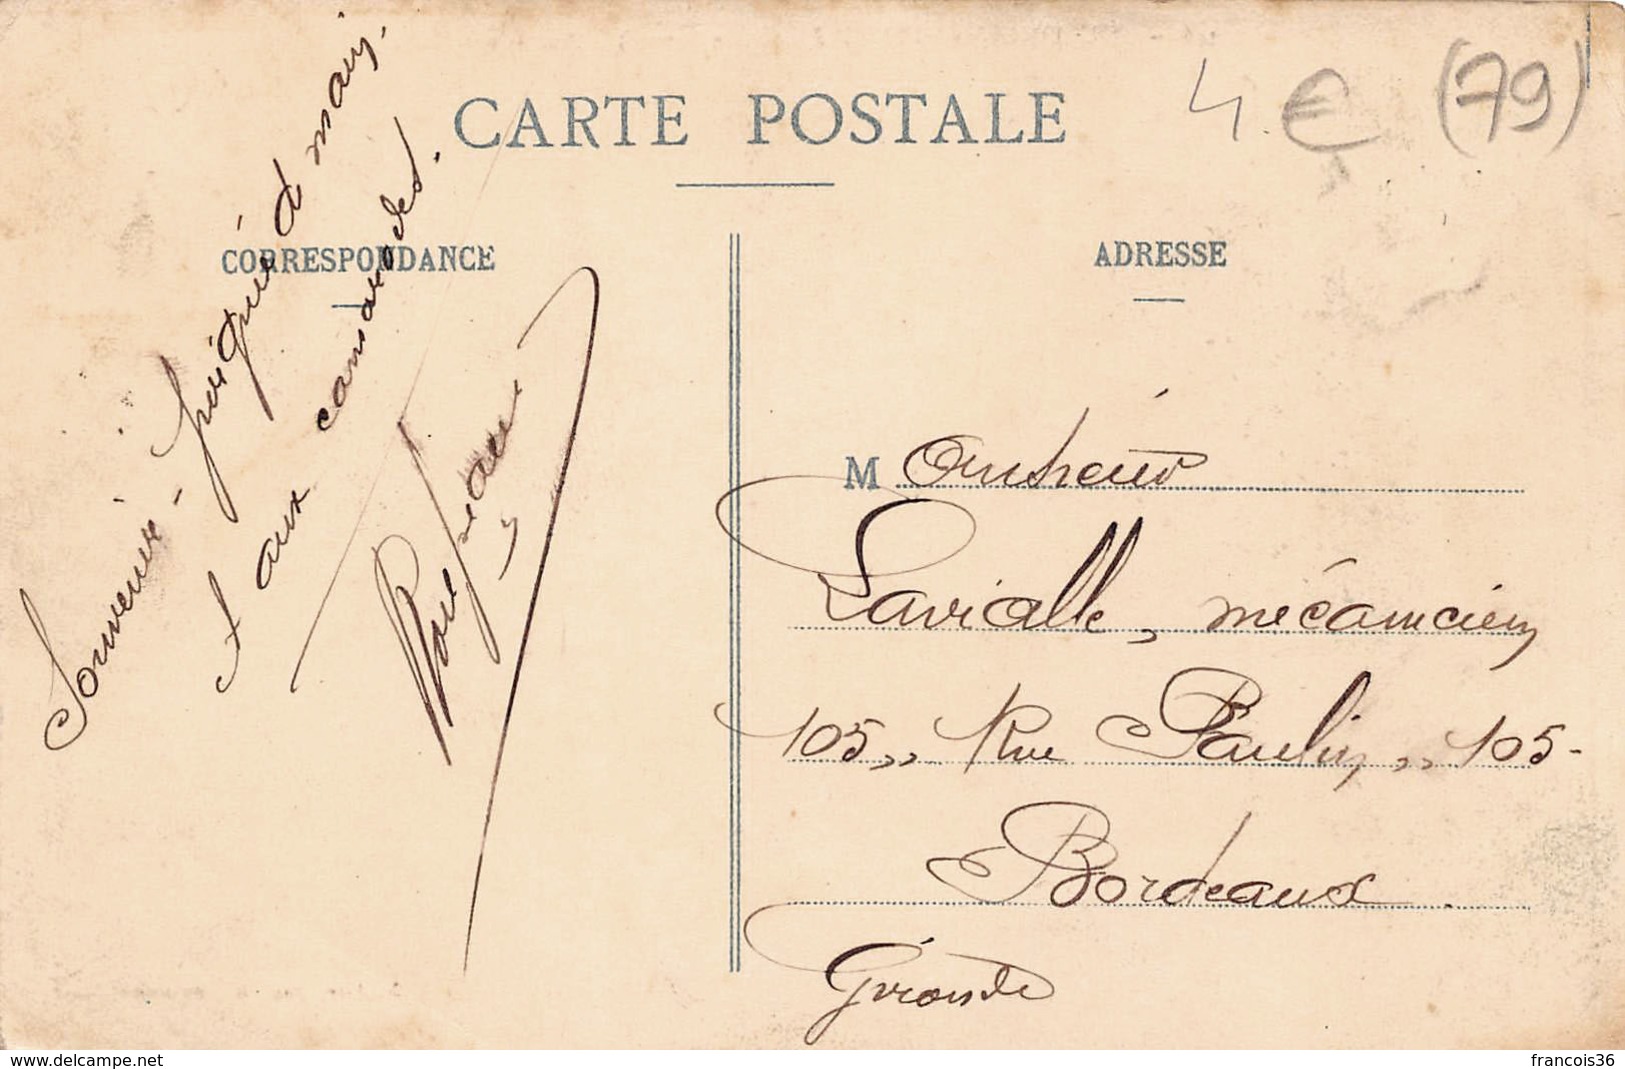 CARTE POSTALE
4 € (79)
CORRESPONDANCE
ADRESSE
Souvenir - poignée d main,
& aux camarades.
Monsieur
Lavialle, mécanicien
105,, Rue Paulin,, 105-
Bordeaux.
Gironde
www.delcampe.net
francois36